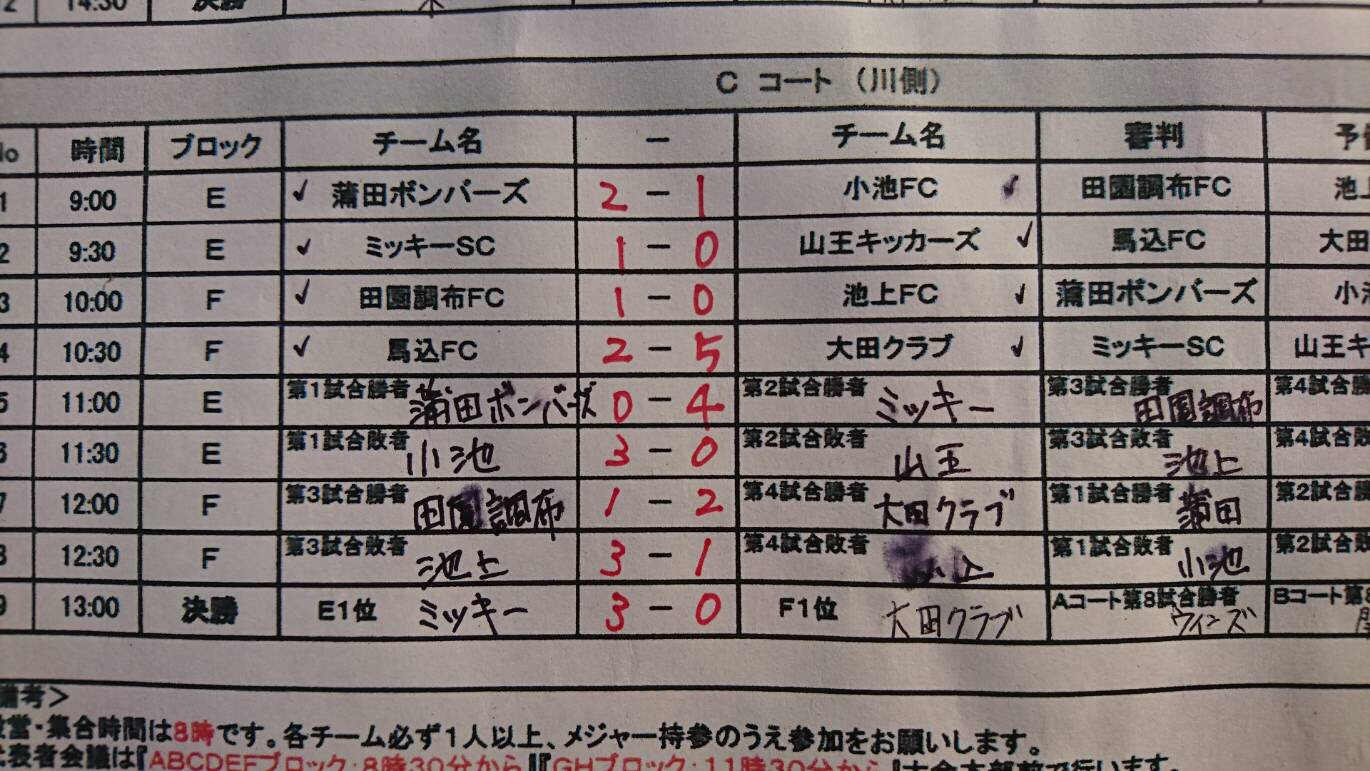 14:30 決勝
C コート（川側）
No 時間 ブロック チーム名 － チーム名 審判 予
1 9:00 E ✓ 蒲田ボンバーズ 2 － 1 小池FC ✓ 田園調布FC 池
2 9:30 E ✓ ミッキーSC 1 － 0 山王キッカーズ ✓ 馬込FC 大田
3 10:00 F ✓ 田園調布FC 1 － 0 池上FC ✓ 蒲田ボンバーズ 小
4 10:30 F ✓ 馬込FC 2 － 5 大田クラブ ✓ ミッキーSC 山王キ
5 11:00 E 第1試合勝者 蒲田ボンバーズ 0 － 4 第2試合勝者 ミッキー 第3試合勝者 田園調布 第4試合勝
6 11:30 E 第1試合敗者 小池 3 － 0 第2試合敗者 山王 第3試合敗者 池上 第4試合敗
7 12:00 F 第3試合勝者 田園調布 1 － 2 第4試合勝者 大田クラブ 第1試合勝者 蒲田 第2試合勝
8 12:30 F 第3試合敗者 池上 3 － 1 第4試合敗者 第1試合敗者 小池 第2試合敗
9 13:00 決勝 E1位 ミッキー 3 － 0 F1位 大田クラブ Aコート第8試合勝者 ウインズ Bコート第8
備考＞
設営・集合時間は8時です。各チーム必ず1人以上、メジャー持参のうえ参加をお願いします。
代表者会議は『ABCDEFブロック：8時30分から』『GHブロック：11時30分から』大会本部前で行います。